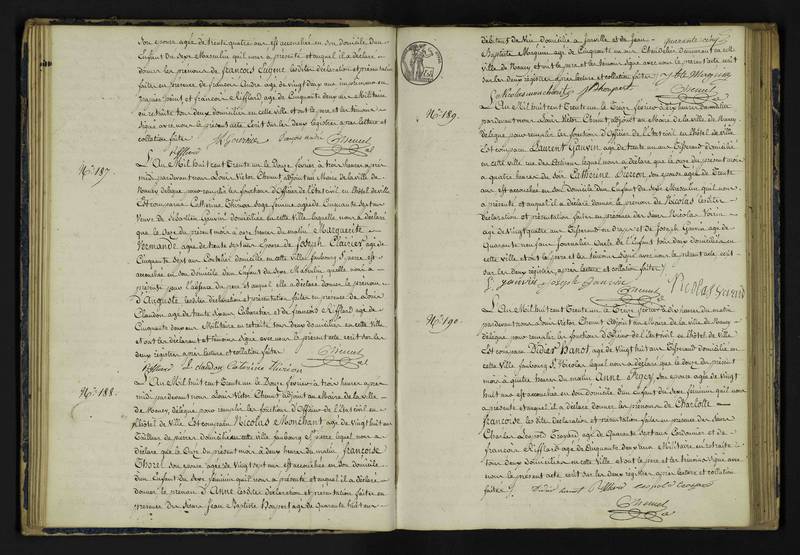 Son epouse agée de trente quatre ans est accouchée en son domicile d'un
Enfant du Sexe Masculin qu'il nous a présenté et auquel il a déclaré
donner les prenoms de François Eugene, lesdites déclaration et présentation
faites en presence de François André agé de vingt deux ans imprimeur en
papiers peints et François Rifflard agé de Cinquante deux ans Militaire
en retraite tous deux domiciliés en cette ville et ont les pere et témoins
Signé avec nous le présent acte Ecrit sur les deux registres après lecture et
collation faites
françois andré
Rifflard
Chenut
No. 187.
L'An Mil huit cent Trente un le Douze février à trois heures après
midi pardevant nous Louis Victor Chenut adjoint au Maire de la ville de
Nancy délégué pour remplir les fonctions d'Officier de l'Etat civil en l'hôtel de ville
Est comparue Catherine Thirion Sage femme agée de Cinquante Sept ans
Veuve de Sébastien domiciliée en cette Ville laquelle nous a déclaré
que le Onze du présent mois à onze heures du matin Marguerite
agée de trente Sept ans Epouse de Joseph Clairier agé de
Cinquante Sept ans domicilié en cette Ville, faubourg St. pierre est
accouchée en son domicile d'un Enfant du Sexe Masculin qu'elle nous a
présenté pour l'absence du pere et auquel elle a déclaré donner le prenom
d'Auguste lesdites déclaration et présentation faites en presence de Louis
Claudon agé de trente ans Cabaretier et de françois Rifflard agé de
Cinquante deux ans Militaire en retraite tous deux domiciliés en cette Ville
et ont les déclarant et témoins signé avec nous le présent acte écrit sur les
deux registres après lecture et collation faites
Rifflard L. claudon Caterine thirion
Chenut
No. 188.
L'An Mil huit cent Trente un le Douze février à trois heures après
midi pardevant nous Louis Victor Chenut adjoint au Maire de la ville
de Nancy, délégué pour remplir les fonctions d'Officier de l'Etat civil en
l'hôtel de ville Est comparu Nicolas Monchant agé de vingt huit ans
Tailleur de pierres domicilié en cette ville faubourg St. pierre lequel nous a
déclaré que le Onze du présent mois à deux heures du matin françoise
Thorel son epouse agée de vingt sept ans est accouchée en son domicile
d'un Enfant du Sexe féminin qu'il nous a présenté et auquel il a déclaré
donner le prenom d'Anne lesdites déclaration et présentation faites en
presence des Sieurs Jean Baptiste agé de quarante huit ans
domicilié à Jarville et de Jean
Baptiste Marquis agé de Cinquante un ans Chandelier demeurant en cette
Ville de Nancy et ont le pere et les témoins signé avec nous le présent acte écrit
sur les deux registres après lecture et collation faites
Chenut
No. 189.
L'An Mil huit cent Trente un le Treize février à dix heures du matin
pardevant nous Louis Victor Chenut adjoint au Maire de la ville de Nancy
délégué pour remplir les fonctions d'Officier de l'Etat civil en l'hôtel de ville
Est comparu Laurent Gauvin agé de trente un ans Tisserand domicilié
en cette ville lequel nous a déclaré que le Onze du présent mois
à quatre heures du soir Catherine son epouse agée de Trente
ans est accouchée en son domicile d'un Enfant du Sexe Masculin qu'il nous
a présenté et auquel il a déclaré donner le prenom de Nicolas lesdites
déclaration et présentation faites en presence des Sieurs Nicolas
agé de vingt quatre ans Tisserand et de Joseph Gauvin agé de
Quarante neuf ans Journalier Oncle de l'Enfant tous deux domiciliés en
cette ville, et ont le pere et les témoins Signé avec nous le présent acte écrit
sur les deux registres après lecture et collation faites
L. gauvin Joseph Gauvin
Chenut
No. 190.
L'An Mil huit cent Trente un le Treize février à dix heures du matin
pardevant nous Louis Victor Chenut Adjoint au Maire de la ville de Nancy
délégué pour remplir les fonctions d'Officier de l'Etat civil en l'hôtel de Ville
Est comparu Didier Hanot agé de vingt huit ans Tisserand domicilié en
cette Ville faubourg St. Nicolas lequel nous a déclaré que le douze du présent
mois à quatre heures du matin Anne son epouse agée de vingt
huit ans est accouchée en son domicile d'un Enfant du Sexe féminin qu'il nous
a présenté et auquel il a déclaré donner les prenoms de Charlotte
françoise, lesdites déclaration et présentation faites en presence des Sieurs
Charles Léopold agé de Quarante sept ans Cordonnier et de
françois Rifflard agé de Cinquante deux ans Militaire en retraite
tous deux domiciliés en cette Ville et ont le pere et les témoins signé avec
nous le présent acte écrit sur les deux registres après lecture et collation
faites
Didier hanot Rifflard
Chenut